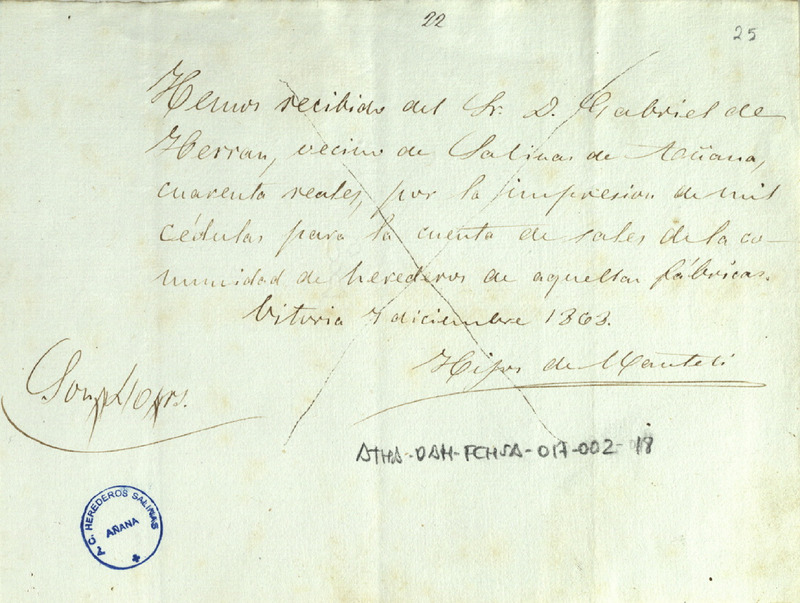 22
25
Hemos recibido del Sr. D. Gabriel de
Herran, vecino de Salinas de Añana,
cuarenta reales, por la impresion de mil
cédulas para la cuenta de sales de la co-
munidad de herederos de aquellas fábricas.
Vitoria 7 diciembre 1863.
Hijos de Manteli
Son 40 rs.
ATHA-DAH-FCHSA-017-002-18
A. C. HEREDEROS SALINAS
AÑANA